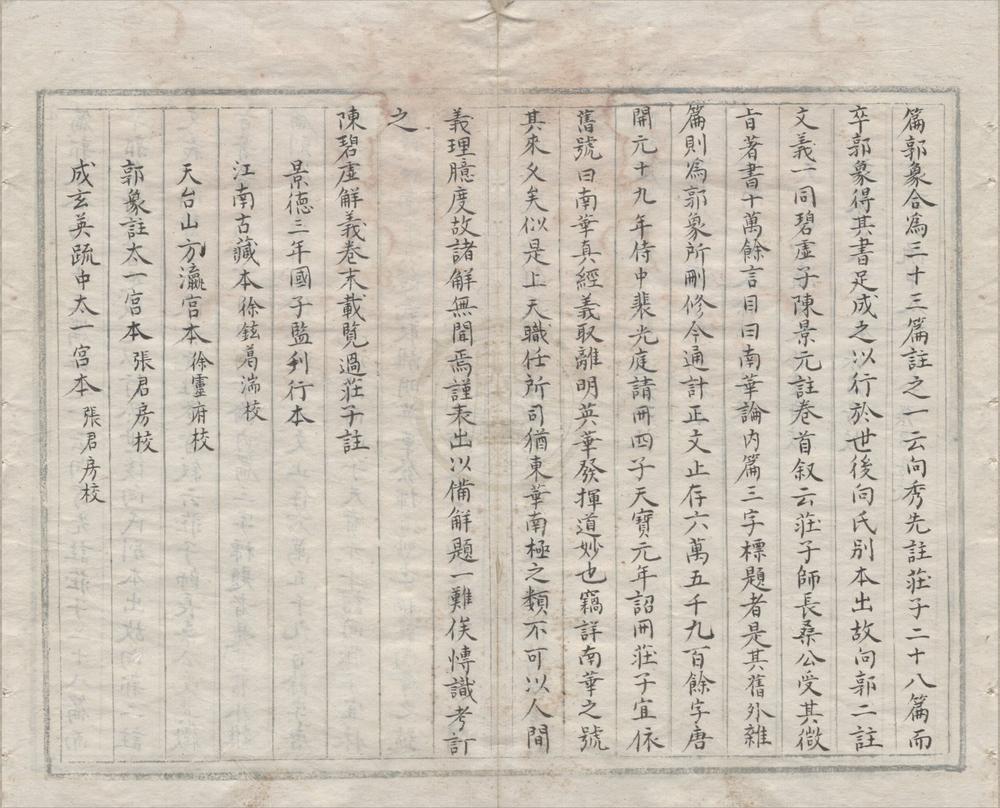 篇郭象合爲三十三篇註之一云向秀先註莊子二十八篇而
卒郭象得其書足成之以行於世後向氏别本出故向郭二註
文義一同碧虛子陳景元註卷首叙云莊子師長桑公受其微
㫖著書十萬餘言目曰南華論内篇三字標題者是其舊外雜
篇則爲郭象所刪修今通計正文止存六萬五千九百餘字唐
開元十九年侍中裴光庭請冊四子天寶元年詔冊莊子宜依
舊號曰南華真經義取離明英華發揮道妙也竊詳南華之號
其來久矣似是上天職任所司猶東華南極之類不可以人間
義理臆度故諸解無聞焉謹表出以備解題一難俟博識考訂
之
陳碧虛解義卷末載覽過莊子註
景德三年國子監刋行本
江南古藏本徐鉉葛湍校
天台山方瀛宮本徐靈府校
郭象註太一宮本張君房校
成玄英䟽中太一宮本張君房校